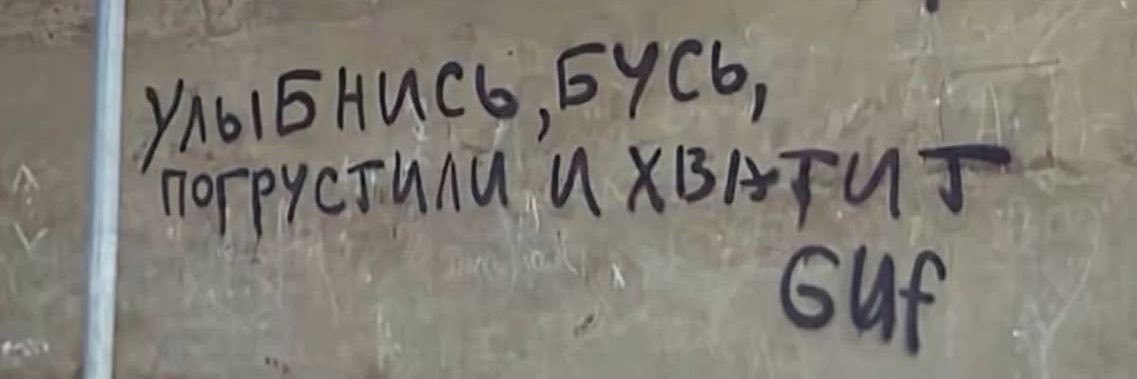 УЛЫБНИСЬ, БУСЬ,
ПОГРУСТИЛИ И ХВАТИТ
Guf